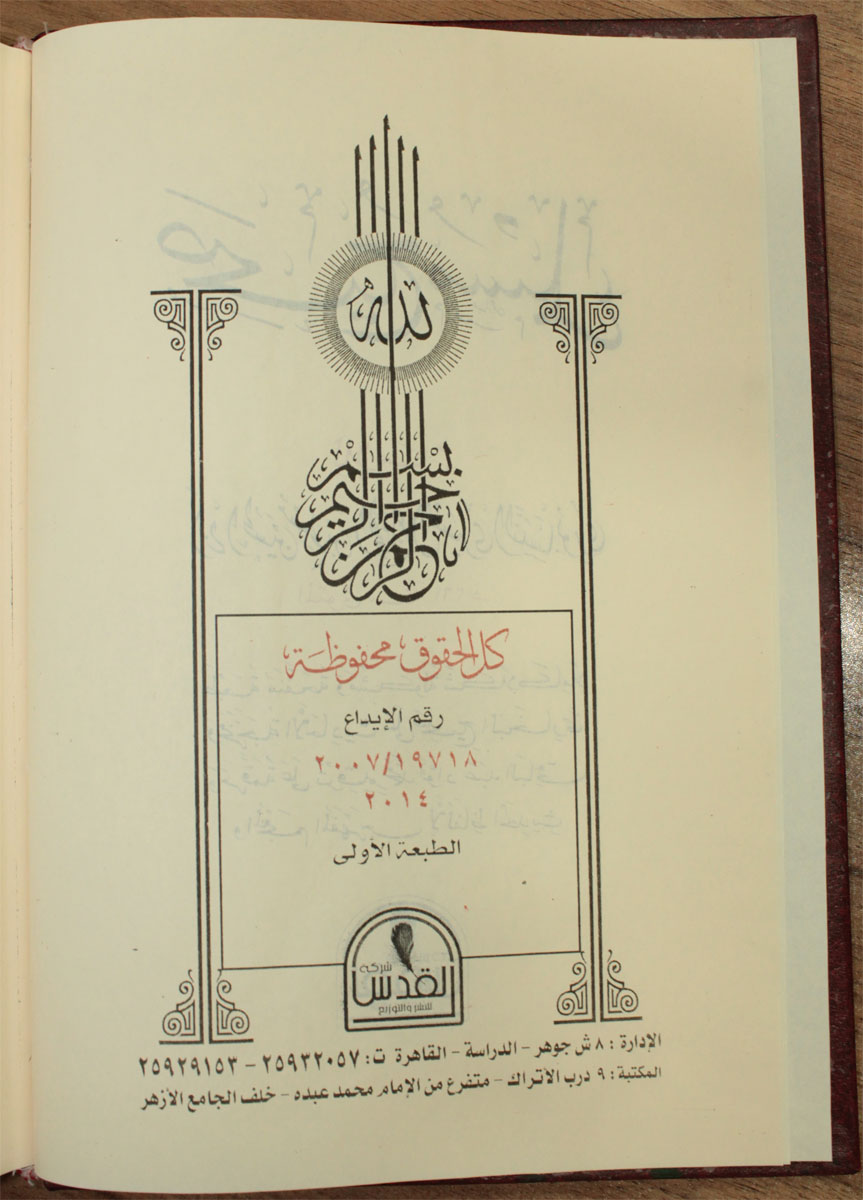 الله
بسم الله الرحمن الرحيم
كل الحقوق محفوظة
رقم الإيداع
٢٠٠٧/١٩٧١٨
٢٠١٤
الطبعة الأولى
شركة
القدس
للنشر والتوزيع
الإدارة : ٨ ش جوهر - الدراسة - القاهرة ت : ٢٥٩٣٢٠٥٧ - ٢٥٩٢٩١٥٣
المكتبة : ٩ درب الأتراك - متفرع من الإمام محمد عبده - خلف الجامع الأزهر